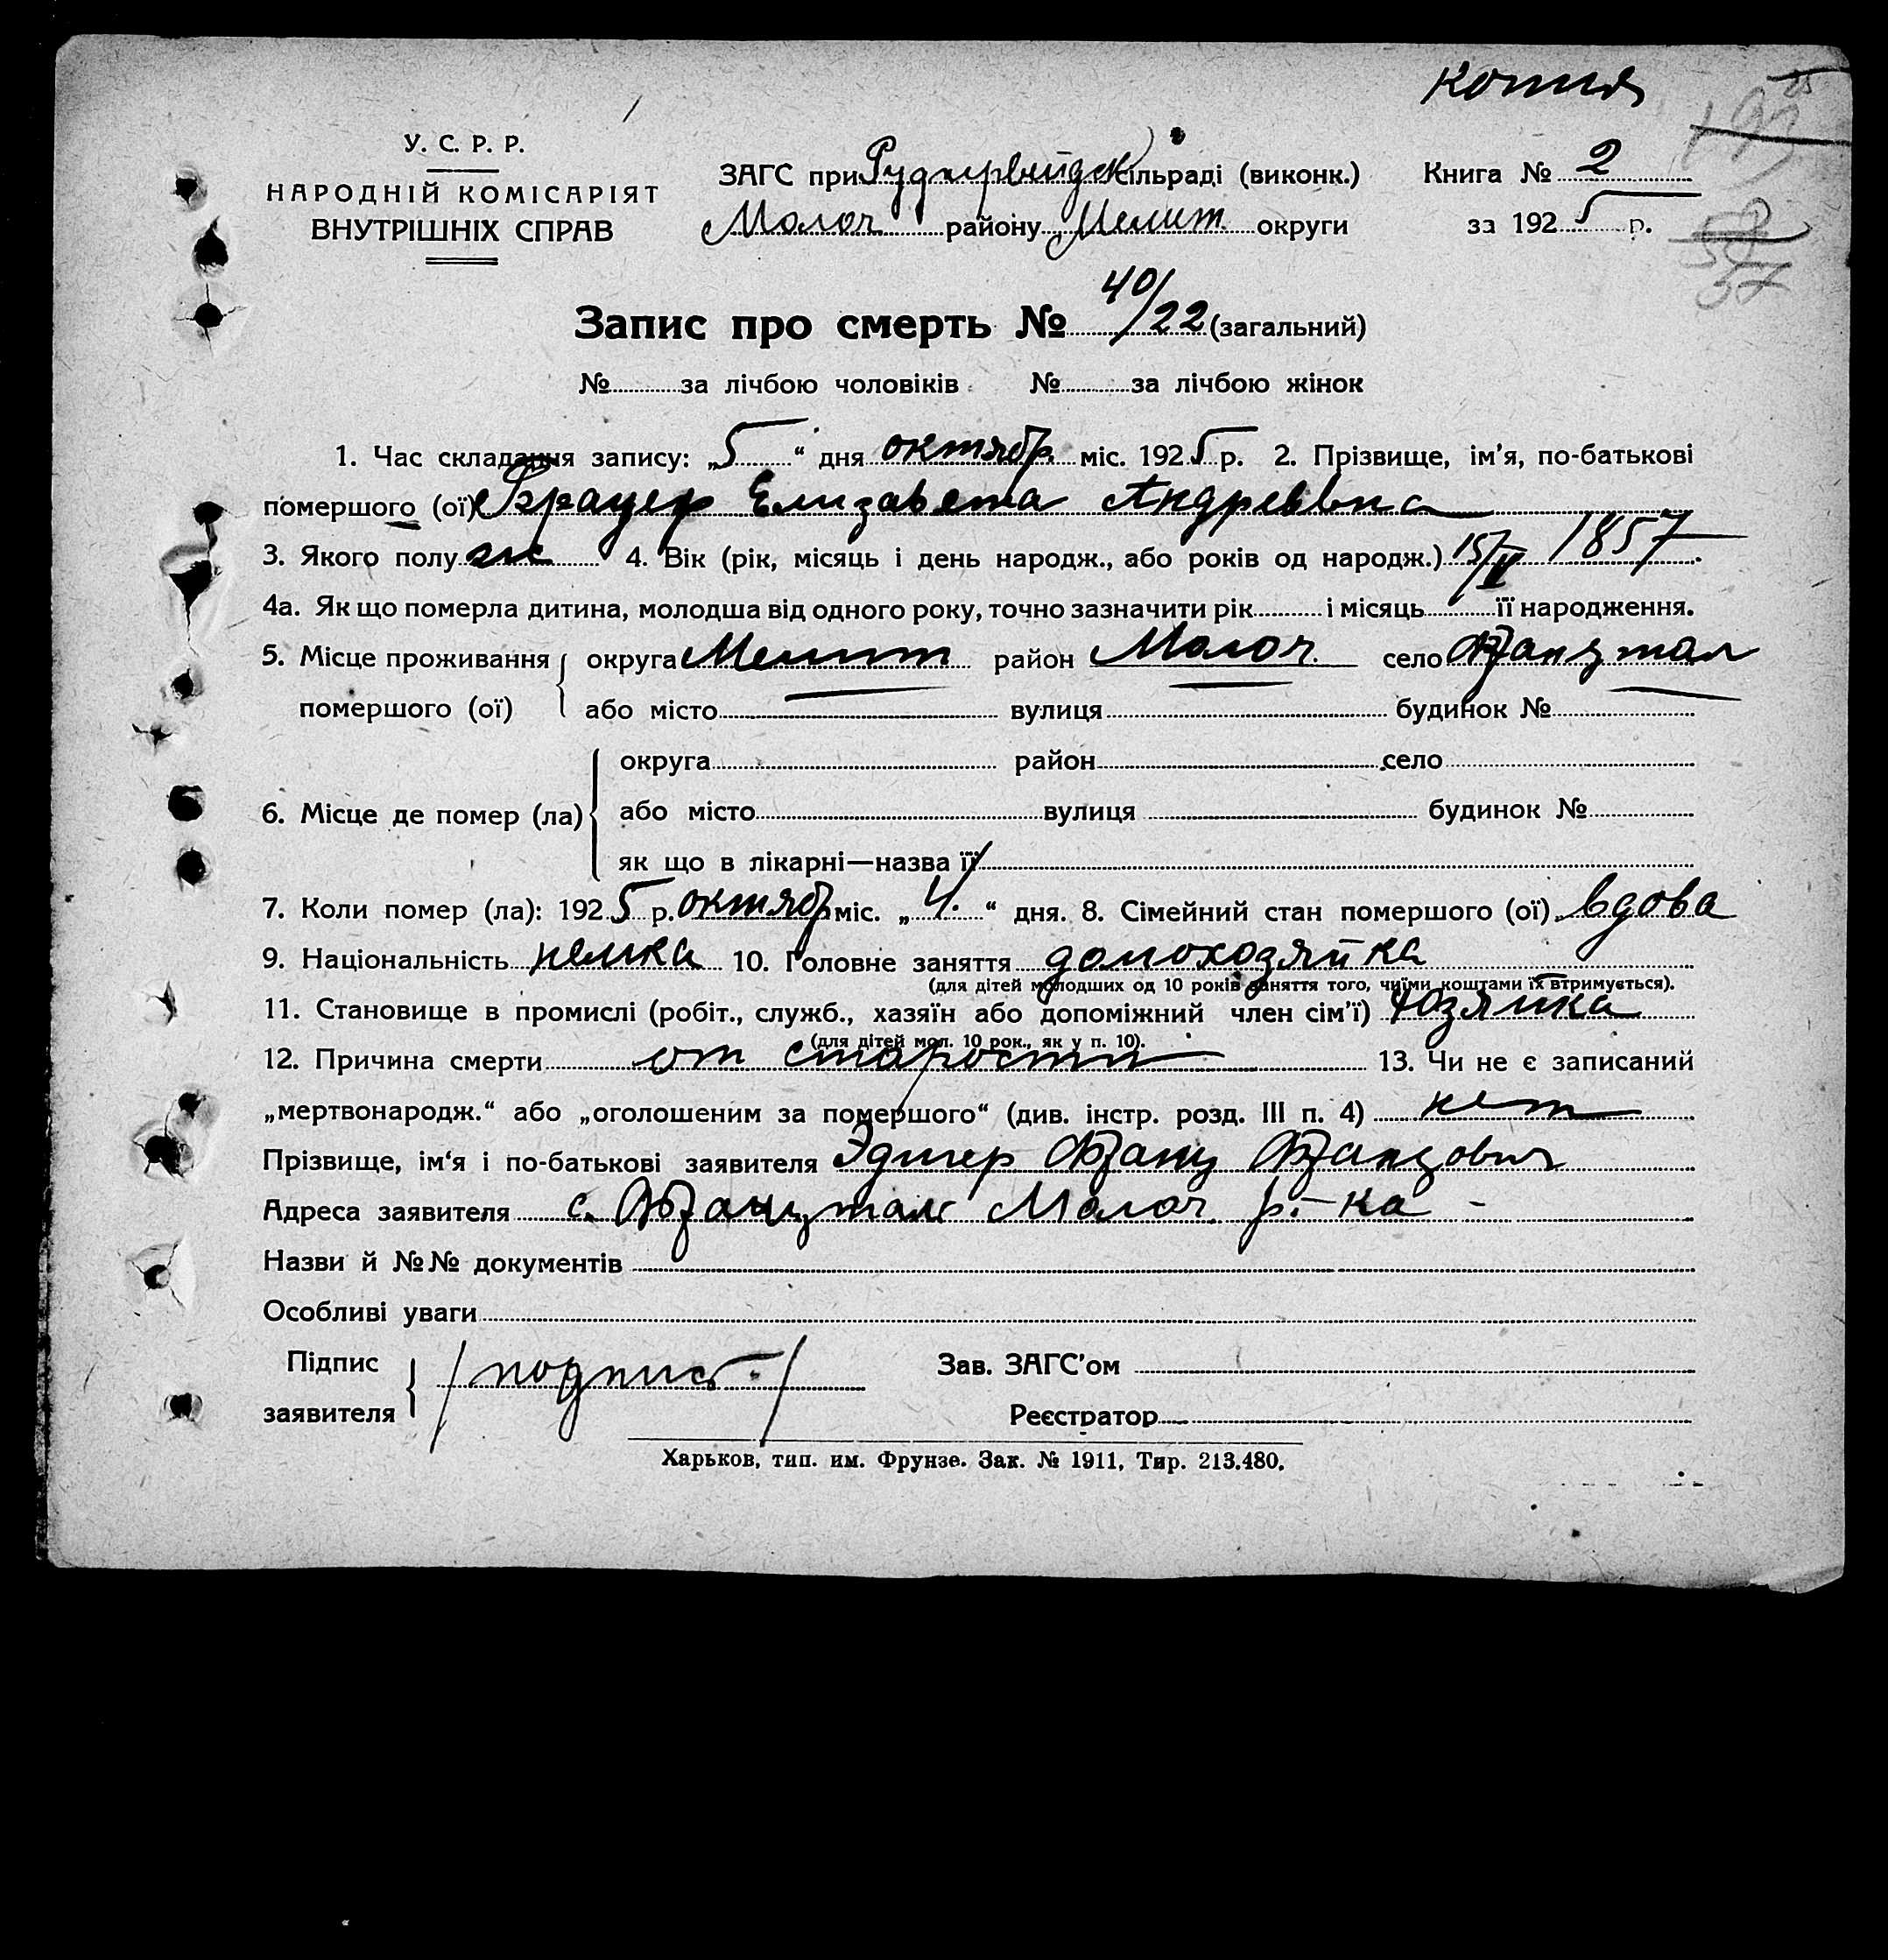 копия
У. С. Р. Р.
НАРОДНІЙ КОМІСАРІЯТ
ВНУТРІШНІХ СПРАВ
ЗАГС при Руднервейдск сільраді (виконк.)
Молоч району Мелит. округи
Книга № 2
за 1925 р.
57
Запис про смерть № 40/22 (загальний)
№ за лічбою чоловіків № за лічбою жінок
1. Час складання запису: „5“ дня октябр міс. 1925 р. 2. Прізвище, ім’я, по-батькові
помершого (ої) Брауер Елизавета Андреевна
3. Якого полу ж 4. Вік (рік, місяць і день народж., або років од народж.) 15/V 1857.
4а. Як що померла дитина, молодша від одного року, точно зазначити рік і місяць її народження.
5. Місце проживання помершого (ої) округа Мелит район Молоч. село Францтал
або місто вулиця будинок №
6. Місце де помер (ла) округа район село
або місто вулиця будинок №
як що в лікарні—назва її
7. Коли помер (ла): 1925 р. октябр міс. „4.“ дня. 8. Сімейний стан помершого (ої) вдова
9. Національність немка 10. Головне заняття домохозяйка
(для дітей молодших од 10 років заняття того, чиїми коштами їх втримується).
11. Становище в промислі (робіт., служб., хазяїн або допоміжний член сім’ї) хозяйка
(для дітей мол. 10 рок., як у п. 10).
12. Причина смерти от старости 13. Чи не є записаний
„мертвонародж.“ або „оголошеним за помершого“ (див. інстр. розд. III п. 4) нет
Прізвище, ім‘я і по-батькові заявителя Эдигер Франц Францович
Адреса заявителя с. Францтал Молоч р.-ка -
Назви й №№ документів
Особливі уваги
Підпис заявителя /подпись./ Зав. ЗАГС’ом
Реєстратор
Харьков, тип. им. Фрунзе. Зак. № 1911, Тир. 213.480.